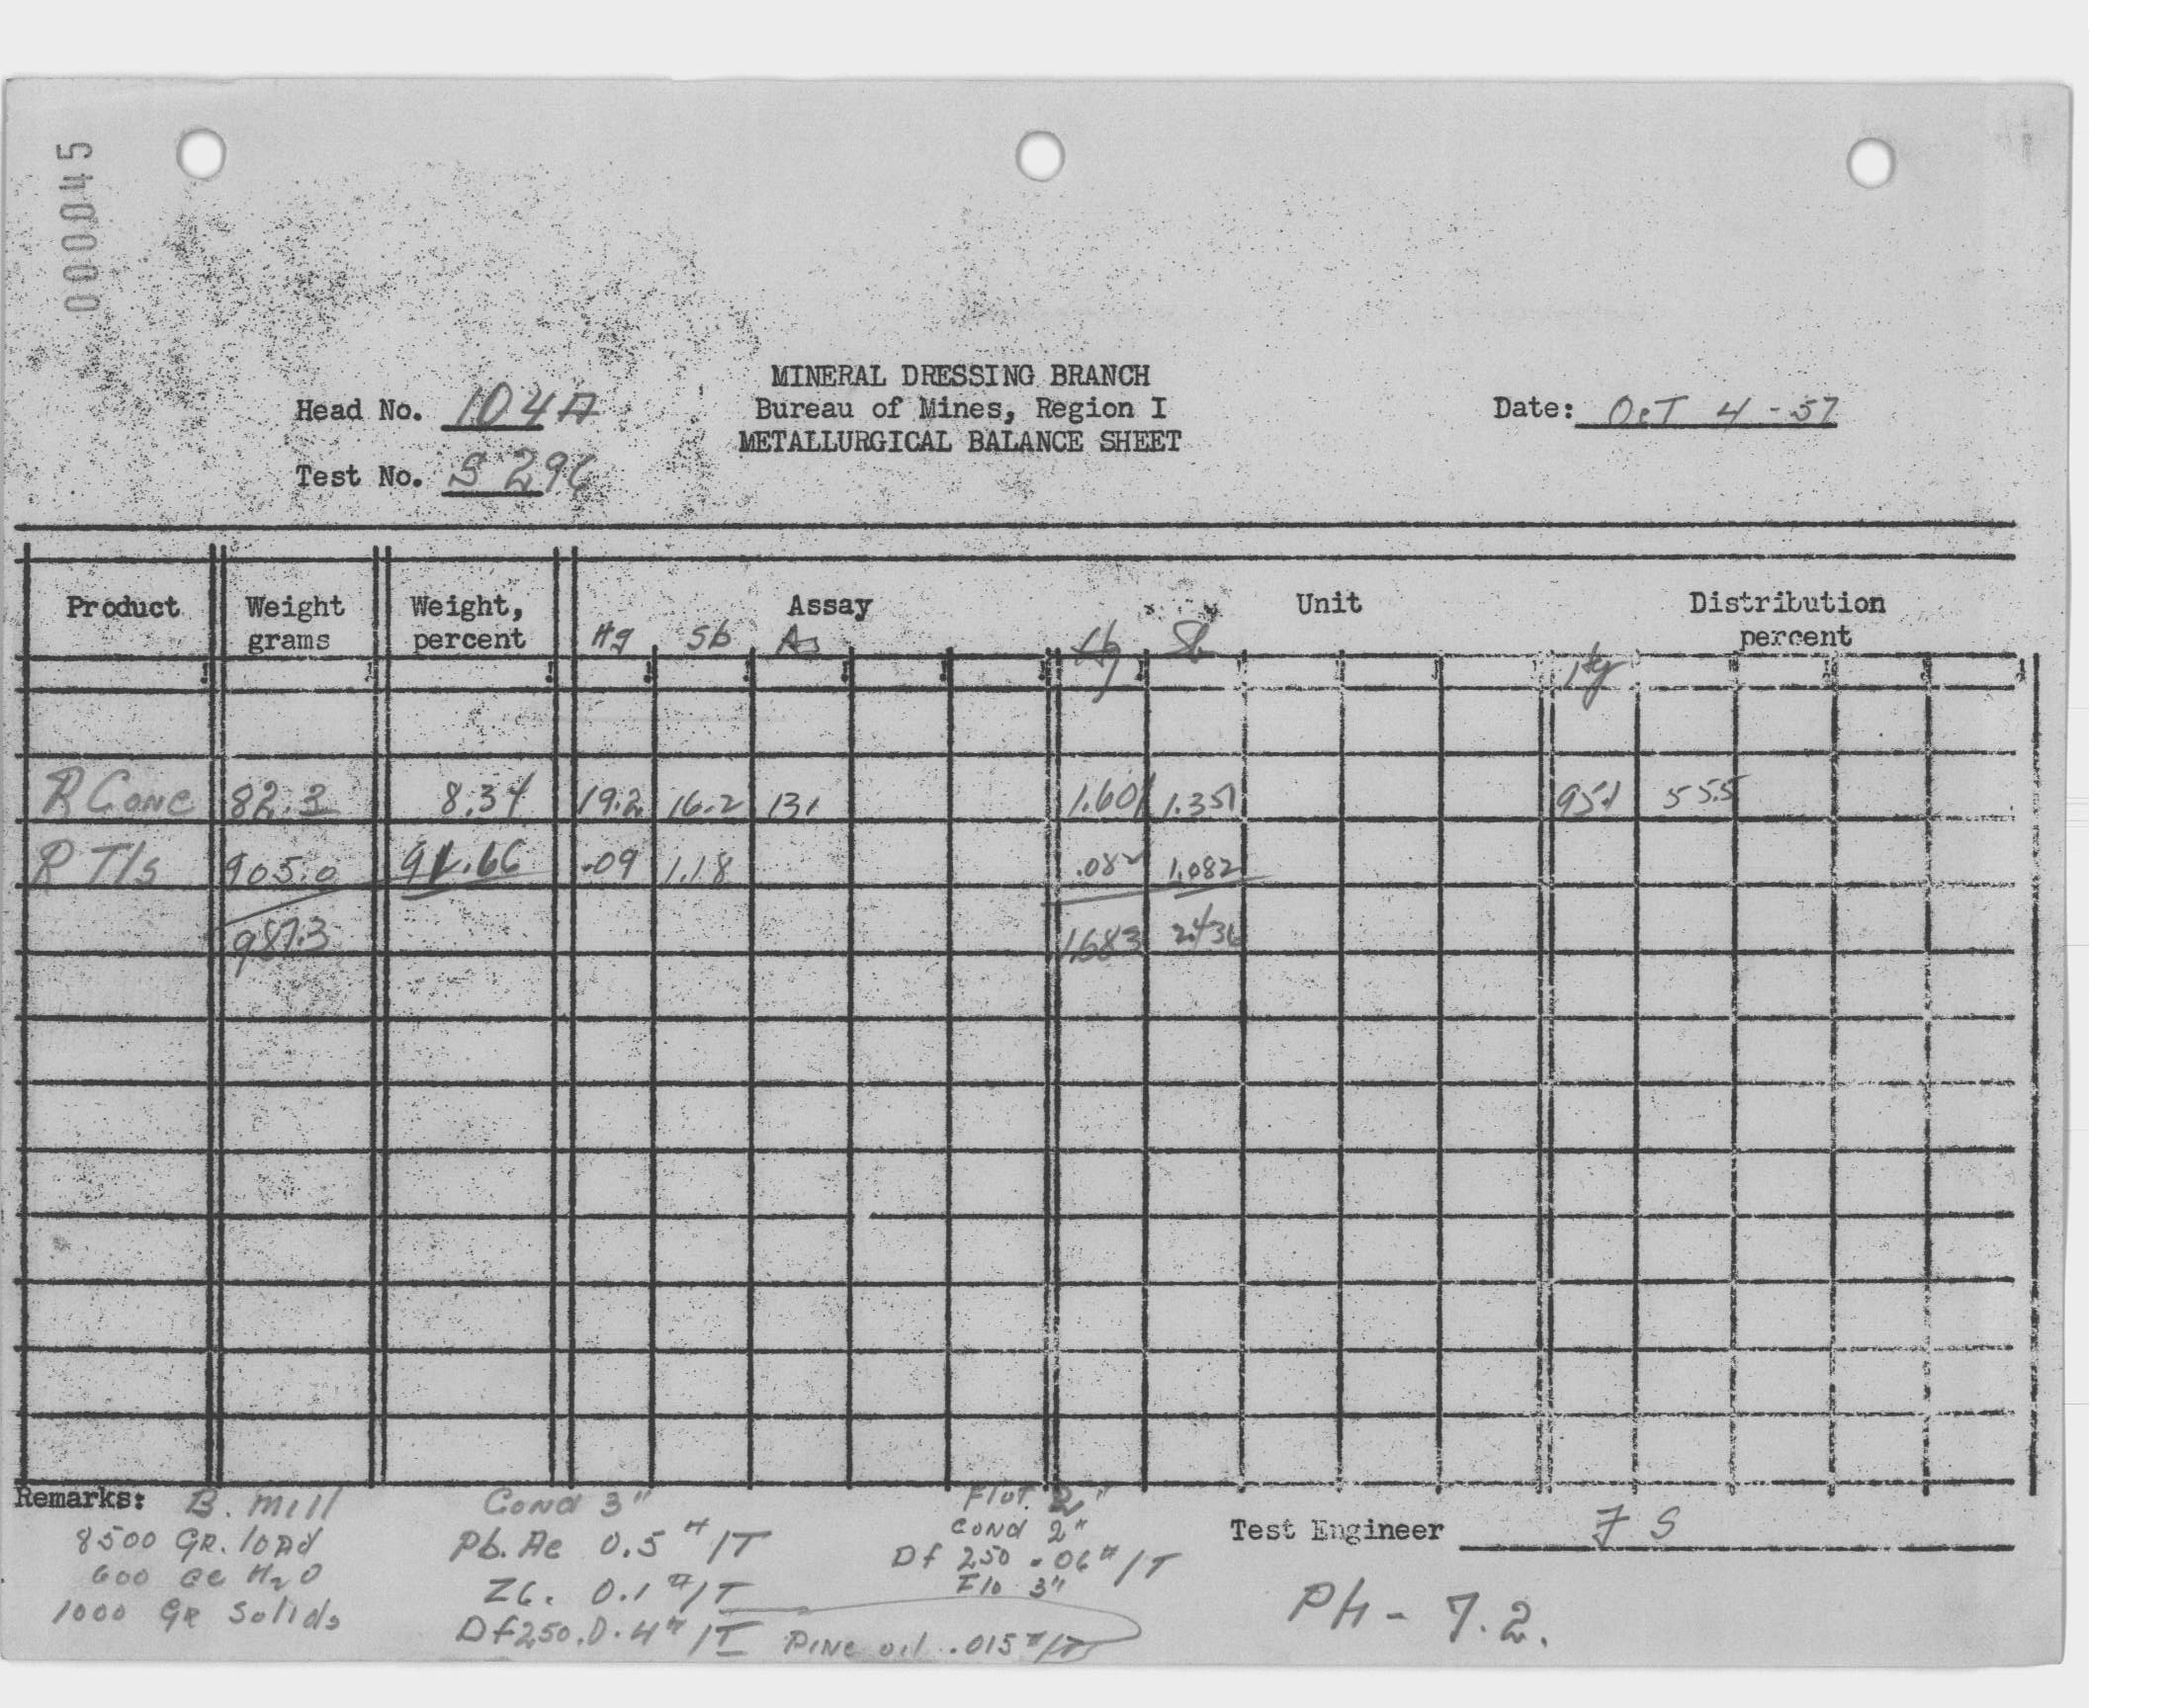 000045
MINERAL DRESSING BRANCH
Head No. 104A Bureau of Mines, Region I Date: Oct 4 - 57
METALLURGICAL BALANCE SHEET
Test No. S 296
Product Weight grams Weight, percent Assay Unit Distribution percent
Hg Sb As Hg Sb Hg
R Conc 82.3 8.34 19.2 16.2 .131 1.601 1.351 95.1 55.5
R Tls 905.0 91.66 .09 1.18 .082 1.082
987.3 1.683 2.436
Remarks: B. Mill
8500 GR. load
600 cc H2O
1000 GR Solids
Cond 3"
Pb. Ac 0.5 #/T
Z6. 0.1 #/T
Df 250. 0.4 #/T Pine oil .015 #/T
Flot. 2"
Cond 2"
Df 250 .06 #/T
Flo 3"
Test Engineer F S
PH - 7.2.